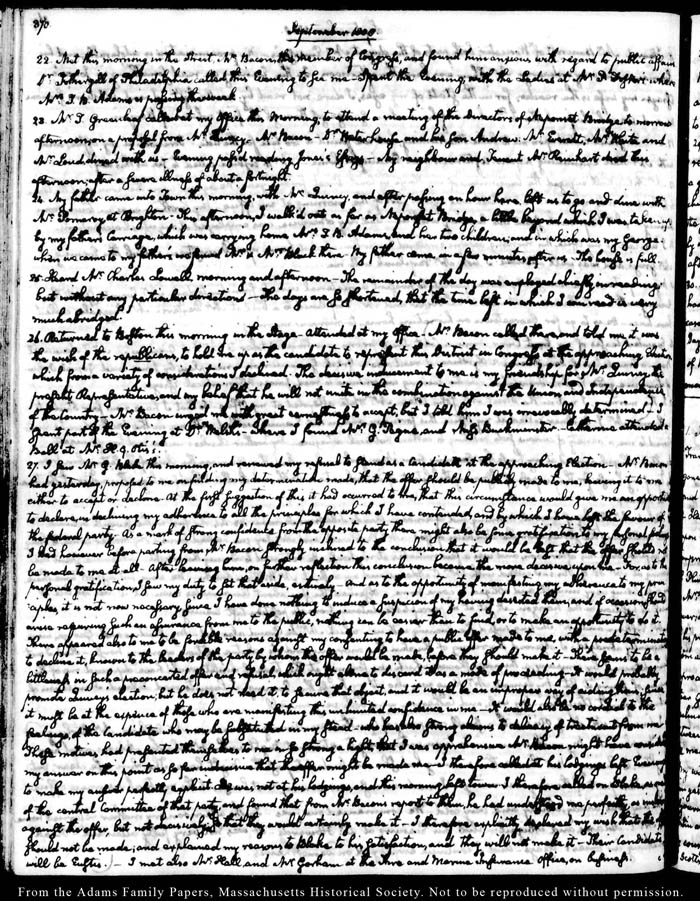 370.
September 1808.
22. Met this morning in the Street, Mr. Bacon, the member of Congress, and found him anxious with regard to public affairs
Dr. Fothergill of Philadelphia called this Evening to see me — Spent the Evening, with the Ladies at Mr. where
Mrs. T. B. Adams is passing the week.
23. Mr. T. Greenleaf called at my Office this Morning, to attend a meeting of the Directors of Neponset Bridge to morrow
afternoon, on a proposal from Mr. Mr. Bacon — Dr. Waterhouse, and his Son Andrew. Mr. Everett, Mr. White, and
Mr. dined with us — Evening pass'd reading Jones's Essays — My neighbour and, Tenant Mr. Rinehart died this
afternoon; after a severe illness of about a fortnight.
24. My father came into Town this morning, with Mr. Quincy, and after passing an hour here, left us to go and dine with
Mr. Pomeroy, at Brighton. This afternoon, I walk'd out as far as Neponset Bridge, a little beyond which I was taken up
by my father's Carriage, which was carrying home Mrs. T. B. Adams and her two children; and in which was my George.
when we came to my father's we found Mr. & Mrs. Black there. My father came in a few minutes, after us. The house is full.
25. Heard Mr. Charles Lowell morning and afternoon — The remainder of the day was employed chiefly in reading;
but without any particular direction — The days are so shortened, that the time left in which I can read is very
much abridged.
26. Returned to Boston this morning in the Stage — Attended at my Office. Mr. Bacon called there and told me it was
the wish of the republicans, to hold me up as the candidate to represent this District in Congress at the approaching Election
which from a variety of considerations I declined. The decisive inducement to me is my friendship for Mr. Quincy, the
present Representative, and my belief that he will not unite in the combination against the Union and Independence
of the Country — Mr. Bacon urged me with great earnestness to accept, but I told him I was irrevocably determined — I
spent part of the Evening at Dr. Welsh's — where I found Mr. G. and Miss Buckminster — Catherine attended a
Ball at Mr. H. G. Otis's.
27. I saw Mr. G. Blake this morning, and renewed my refusal to stand as a Candidate at the approaching Election — Mr. Bacon
had yesterday, proposed to me on finding my determination made, that the offer should be publicly made to me, leaving it to me
either to accept or decline. At the first suggestion of this it had occurred to me, that this circumstance would give me an opportunity
to declare, in declining my adherence to all the principles for which I have contended and by which I have lost the favour of
the federal party. As a mark of strong confidence from the opposite party, there might also be some gratification to my personal feelings
I had however before parting from Mr. Bacon strongly inclined to the conclusion that it would be best that the offer should not
be made to me at all. After leaving him, on further reflection this conclusion became the more decisive upon me. For, as to the
personal gratification, I saw my duty to set that aside entirely — and as to the opportunity of manifesting my adherence to my prin-
ciples, it is not now necessary, since I have done nothing to induce a suspicion of my having deserted them, and if occasion should
arise requiring such an assurance from me to the public, nothing can be easier than to find, or to make an opportunity to do it.
There appeared also to me to be forcible reasons against my consenting to have a public offer made to me, with a predetermination
to decline it, known to the leaders of the party by whom the offer would be made, before they should make it — There seems to be a
littleness in such a preconcerted offer and refusal, which ought alone to discard it as a mode of proceeding — It would probably
promote Quincy's election, but he does not need it, to secure that object, and it would be an improper way of aiding them; since
it must be at the expence of those who are manifesting this unlimited confidence in me — It would also be no comfort to the
feelings, of the Candidate who may be substituted in my stead, who has also strong claims to delicacy of treatment from me.
These motives, had presented themselves to me in so strong a light, that I was apprehensive Mr. Bacon might have considered
my answer on this point as so far indecisive that the offer might be made me — I therefore called at his lodgings last Evening
to make my answer perfectly explicit. He was not at his lodgings, and this morning left town. I therefore called on Blake, as one
of the central Committee of that party, and found that from Mr. Bacon's report to them, he had understood me perfectly, as inclining
against the offer, but not decisively, so that they would certainly make it — I therefore explicitly declared my wish that the offer
should not be made; and explained my reasons to Blake to his satisfaction, and they will not make it — Their Candidate
will be Eustis. — I met also Mr. Hall and Mr. Gorham at the Fire and Marine Insurance Office, on business.
From the Adams Family Papers, Massachusetts Historical Society. Not to be reproduced without permission.